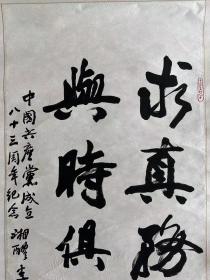 求真務
與時俱
中國共產黨成立
八十三周年紀念 湘醴